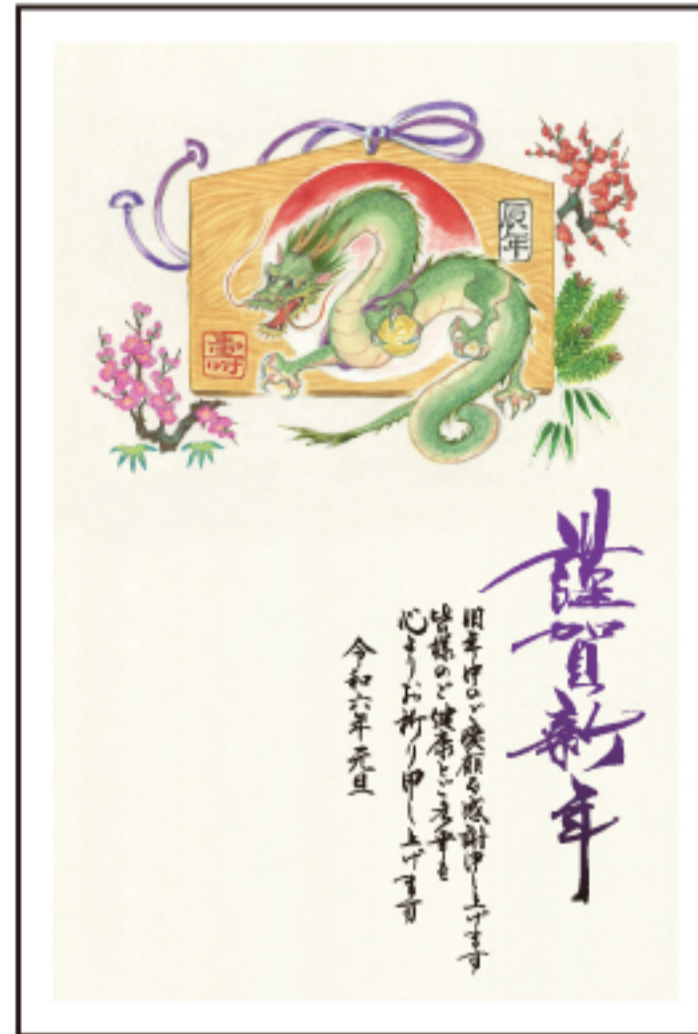 辰年
寿
謹賀新年
旧年中のご愛顧を感謝申し上げます
皆様のご健康とご多幸を
心よりお祈り申し上げます
令和六年元旦